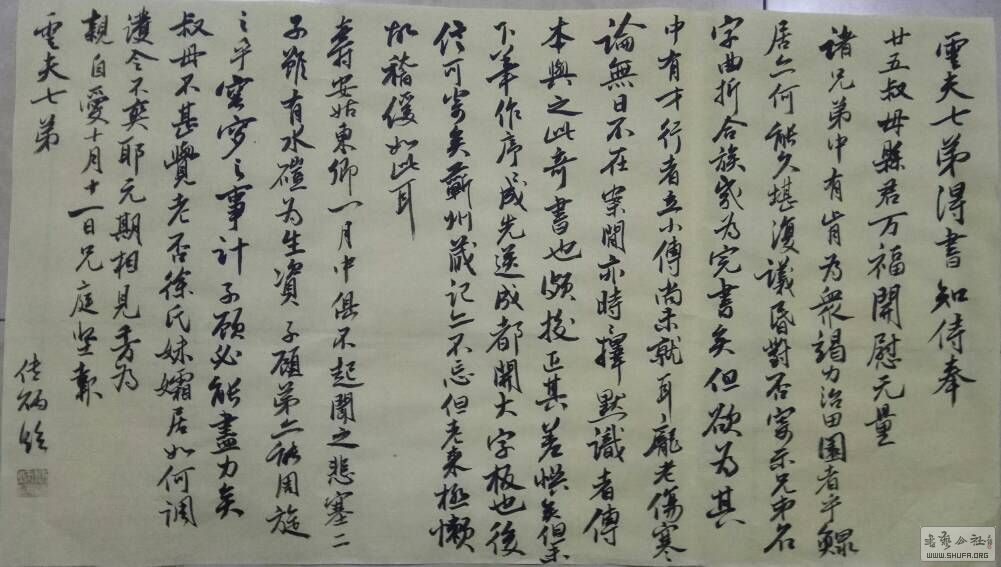 雲夫七弟得書知侍奉
廿五叔母縣君万福開慰无量
諸兄弟中有肯為衆竭力治田園者乎鰥
居亦何能久堪復議昏對否寄示兄弟名
字曲折合族幾為完書矣但欲為其
中有才行者立小傳尚未就耳龐老傷寒
論無日不在案間亦時擇默識者傳
本與之此奇書也頗校正其差悮矣但未
下筆作序序成先送成都開大字板也後
信可寄矣蘄州藏記亦不忘但老來極懶
故稽緩如此耳
壽安姑東卿一月中俱不起聞之悲塞二
子雖有水磑為生資子顧弟亦能周旋
之乎窀穸之事計子顧必能盡力矣
叔母不甚覺老否徐氏妹孀居如何調
護令不爽耶元期相見秀為
親自愛十月十一日兄庭堅報
雲夫七弟
WWW.SHUFA.ORG